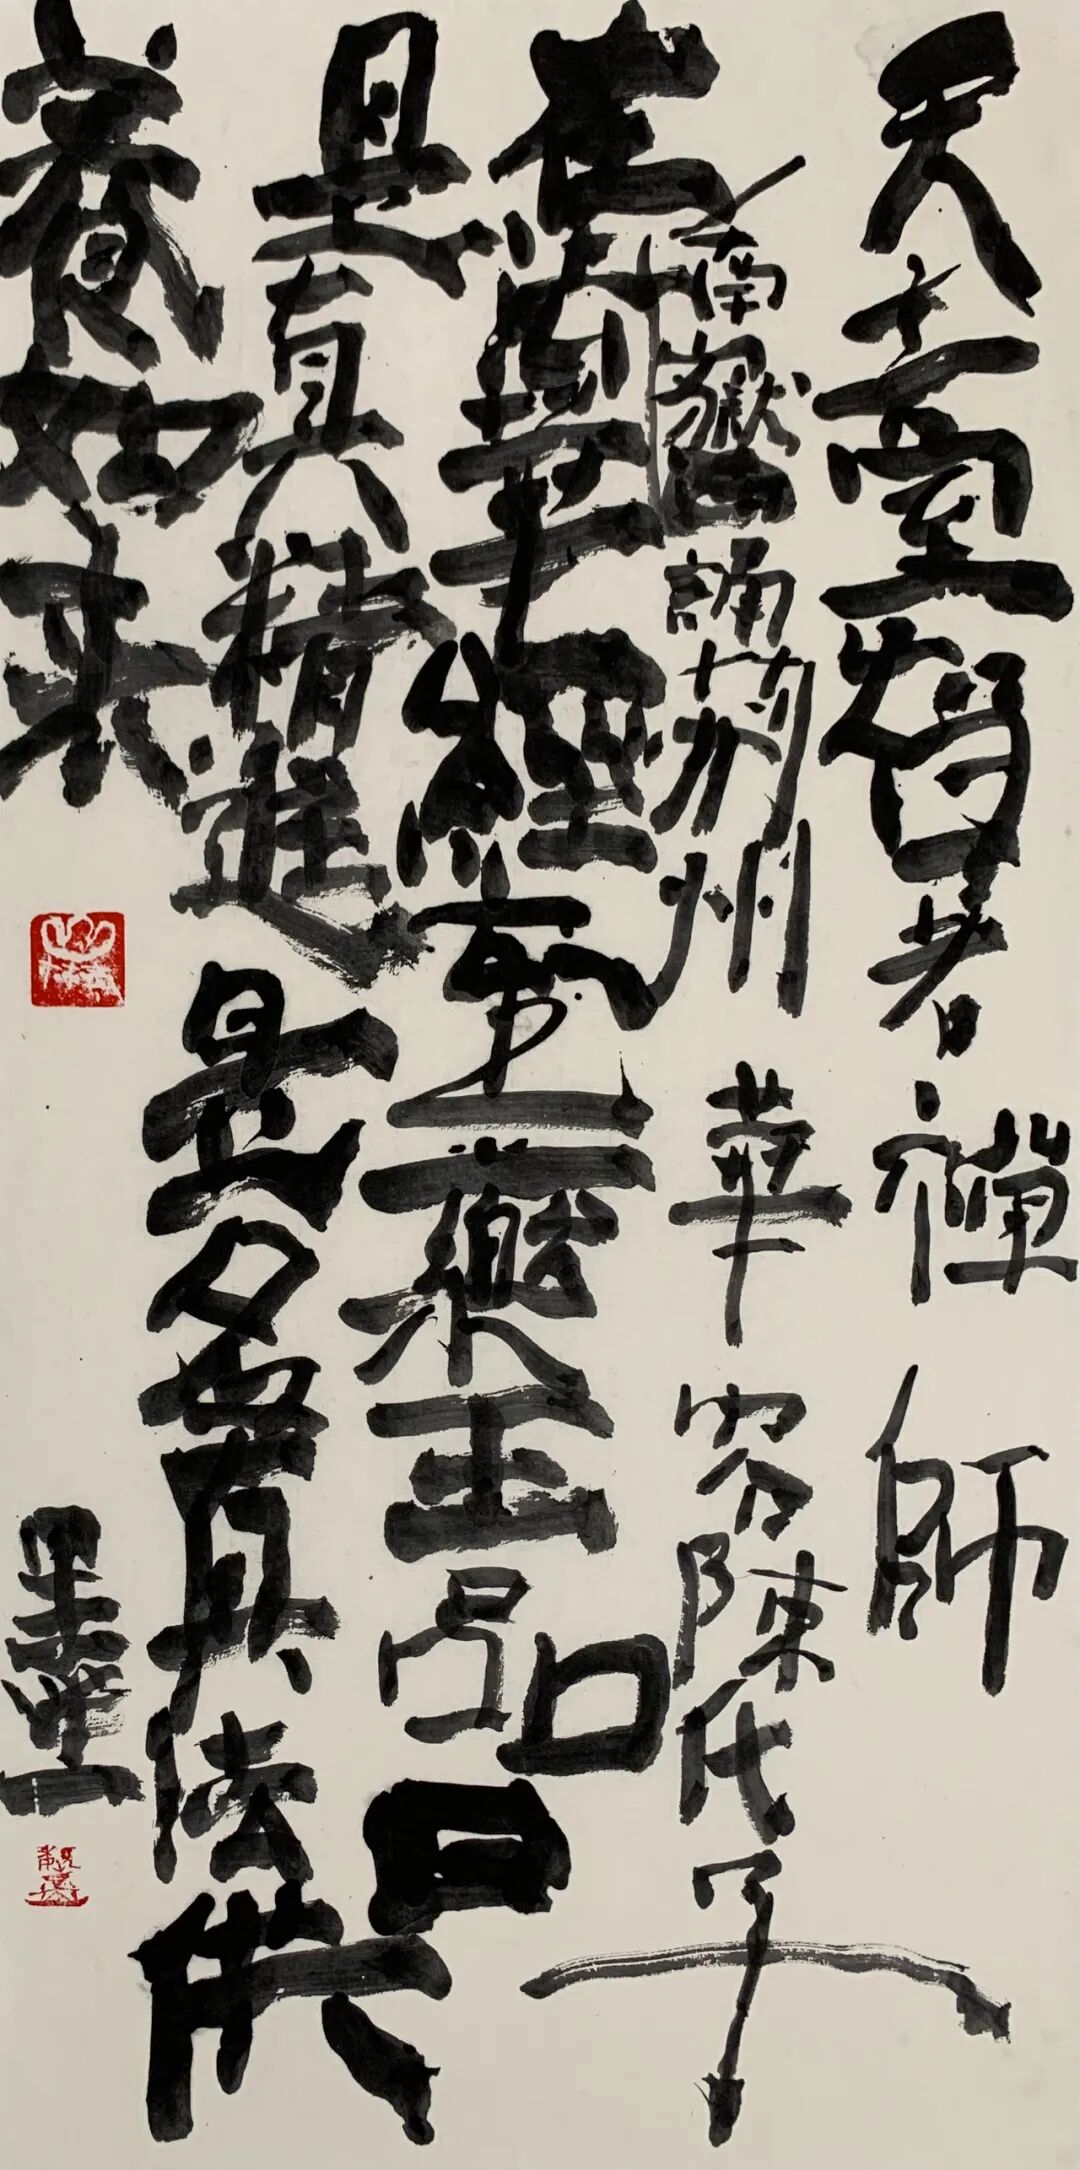 天臺智者禪師
南嶽誦荊州華容陳氏子
在華經至藥王品曰
是真精進是名真法供
養如來